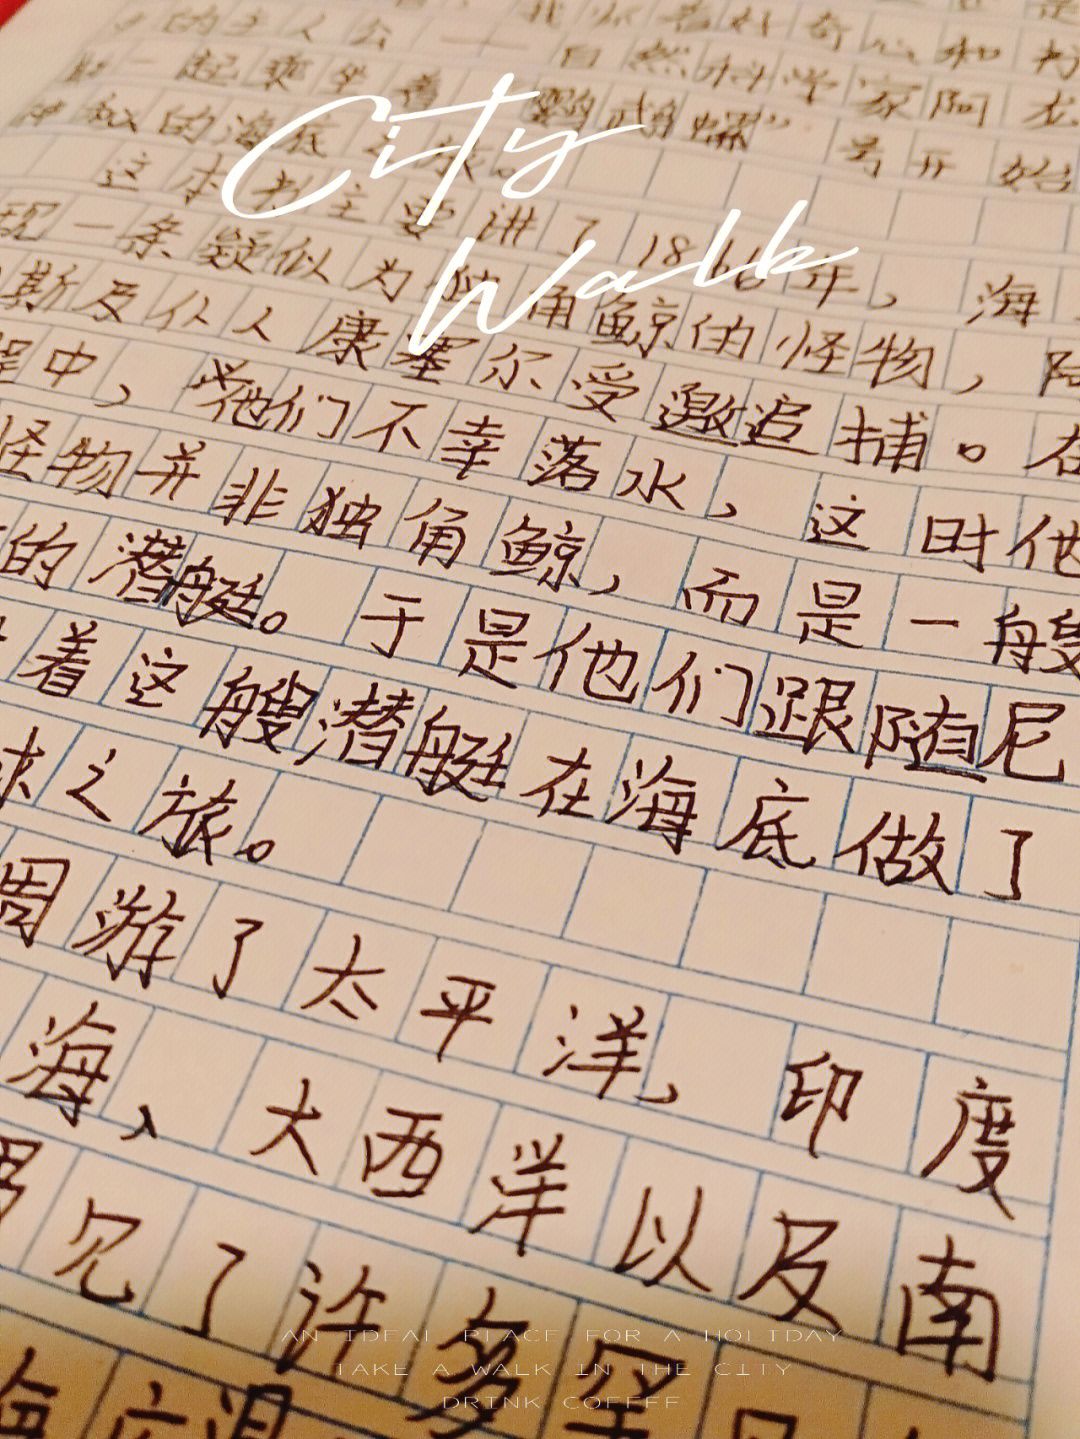 的主人公——自然科学家阿龙
一起乘坐着“鹦鹉螺”号开始
神秘的海底之旅。
这本书主要讲了1866年，海
现一条疑似为独角鲸的怪物，阿
斯及仆人康塞尔受邀追捕。在
程中，他们不幸落水，这时他
怪物并非独角鲸，而是一艘
的潜艇。于是他们跟随尼
着这艘潜艇在海底做了
球之旅。
周游了太平洋，印度
海、大西洋以及南
见了许多
City
Walk
AN IDEAL PLACE FOR A HOLIDAY
TAKE A WALK IN THE CITY
DRINK COFFFF